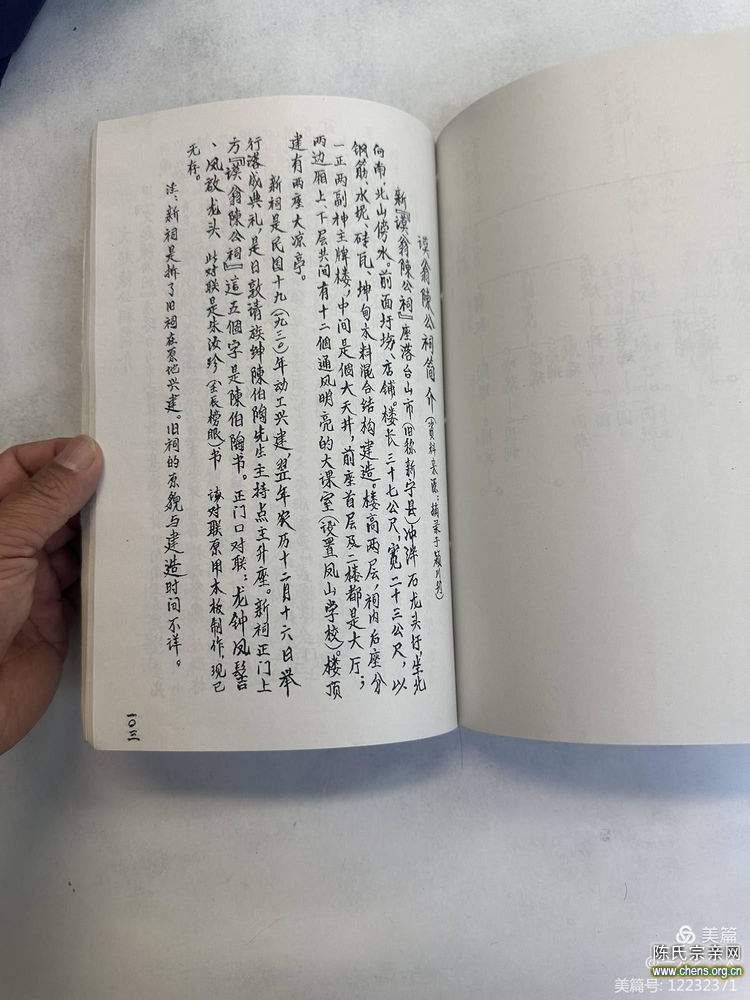 谟翁陳公祠简介(資料来源:摘录于颍川月刊)
新『谟翁陳公祠』座落台山市(旧称新宁县)冲泮石龙头圩,坐北
向南,北山傍水。前面圩坊、店铺。楼长三十七公尺,寬二十三公尺,以
钢筋、水坭、砖瓦、坤甸木料混合结构建造。楼高两层,祠内后座分
一正两副神主牌楼,中间是個大天井,前座首层及二楼都是大厅;
两边厢上、下层共间有十二個通风明亮的大课室(设置凤山学校)。楼顶
建有两座大凉亭。
新祠是民国十九(一九三〇)年动工兴建,翌年农历十二月十六日举
行落成典礼,是日敦请族绅陳伯陶先生主持点主升座。新祠正门上
方『谟翁陳公祠』這五個字是陳伯陶书。正门口对联:龙钟凤髻
、凤啟龙头 此对联是朱汝珍(壬辰榜眼)书 该对联原用木板制作,现已
无存。
注:新祠是拆了旧祠在原地兴建。旧祠的原貌与建造时间不详。
一〇三
美篇
陈氏宗亲网
www.chens.org.cn
美篇号: 12232371